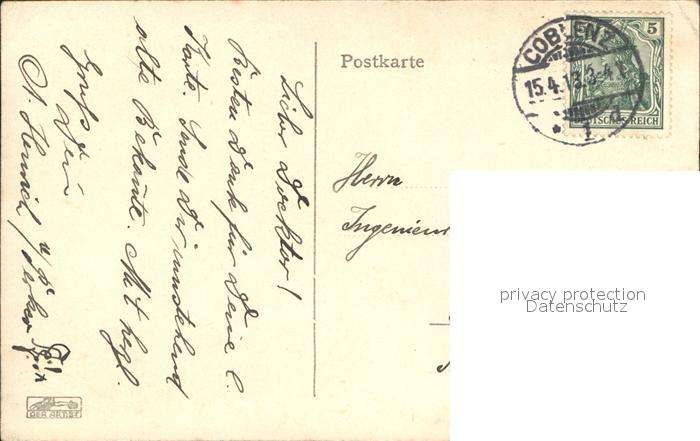 Postkarte
COBLENZ
15.4.13. 3-4 N
* 1 d
5
DEUTSCHES REICH
Herrn
Ingenieur
privacy protection
Datenschutz
Lieber Doctor!
Besten Dank für Deine l.
Karte. Sende Dir umstehend
alte Bekannte. Mit hrzl.
Gruß Dein